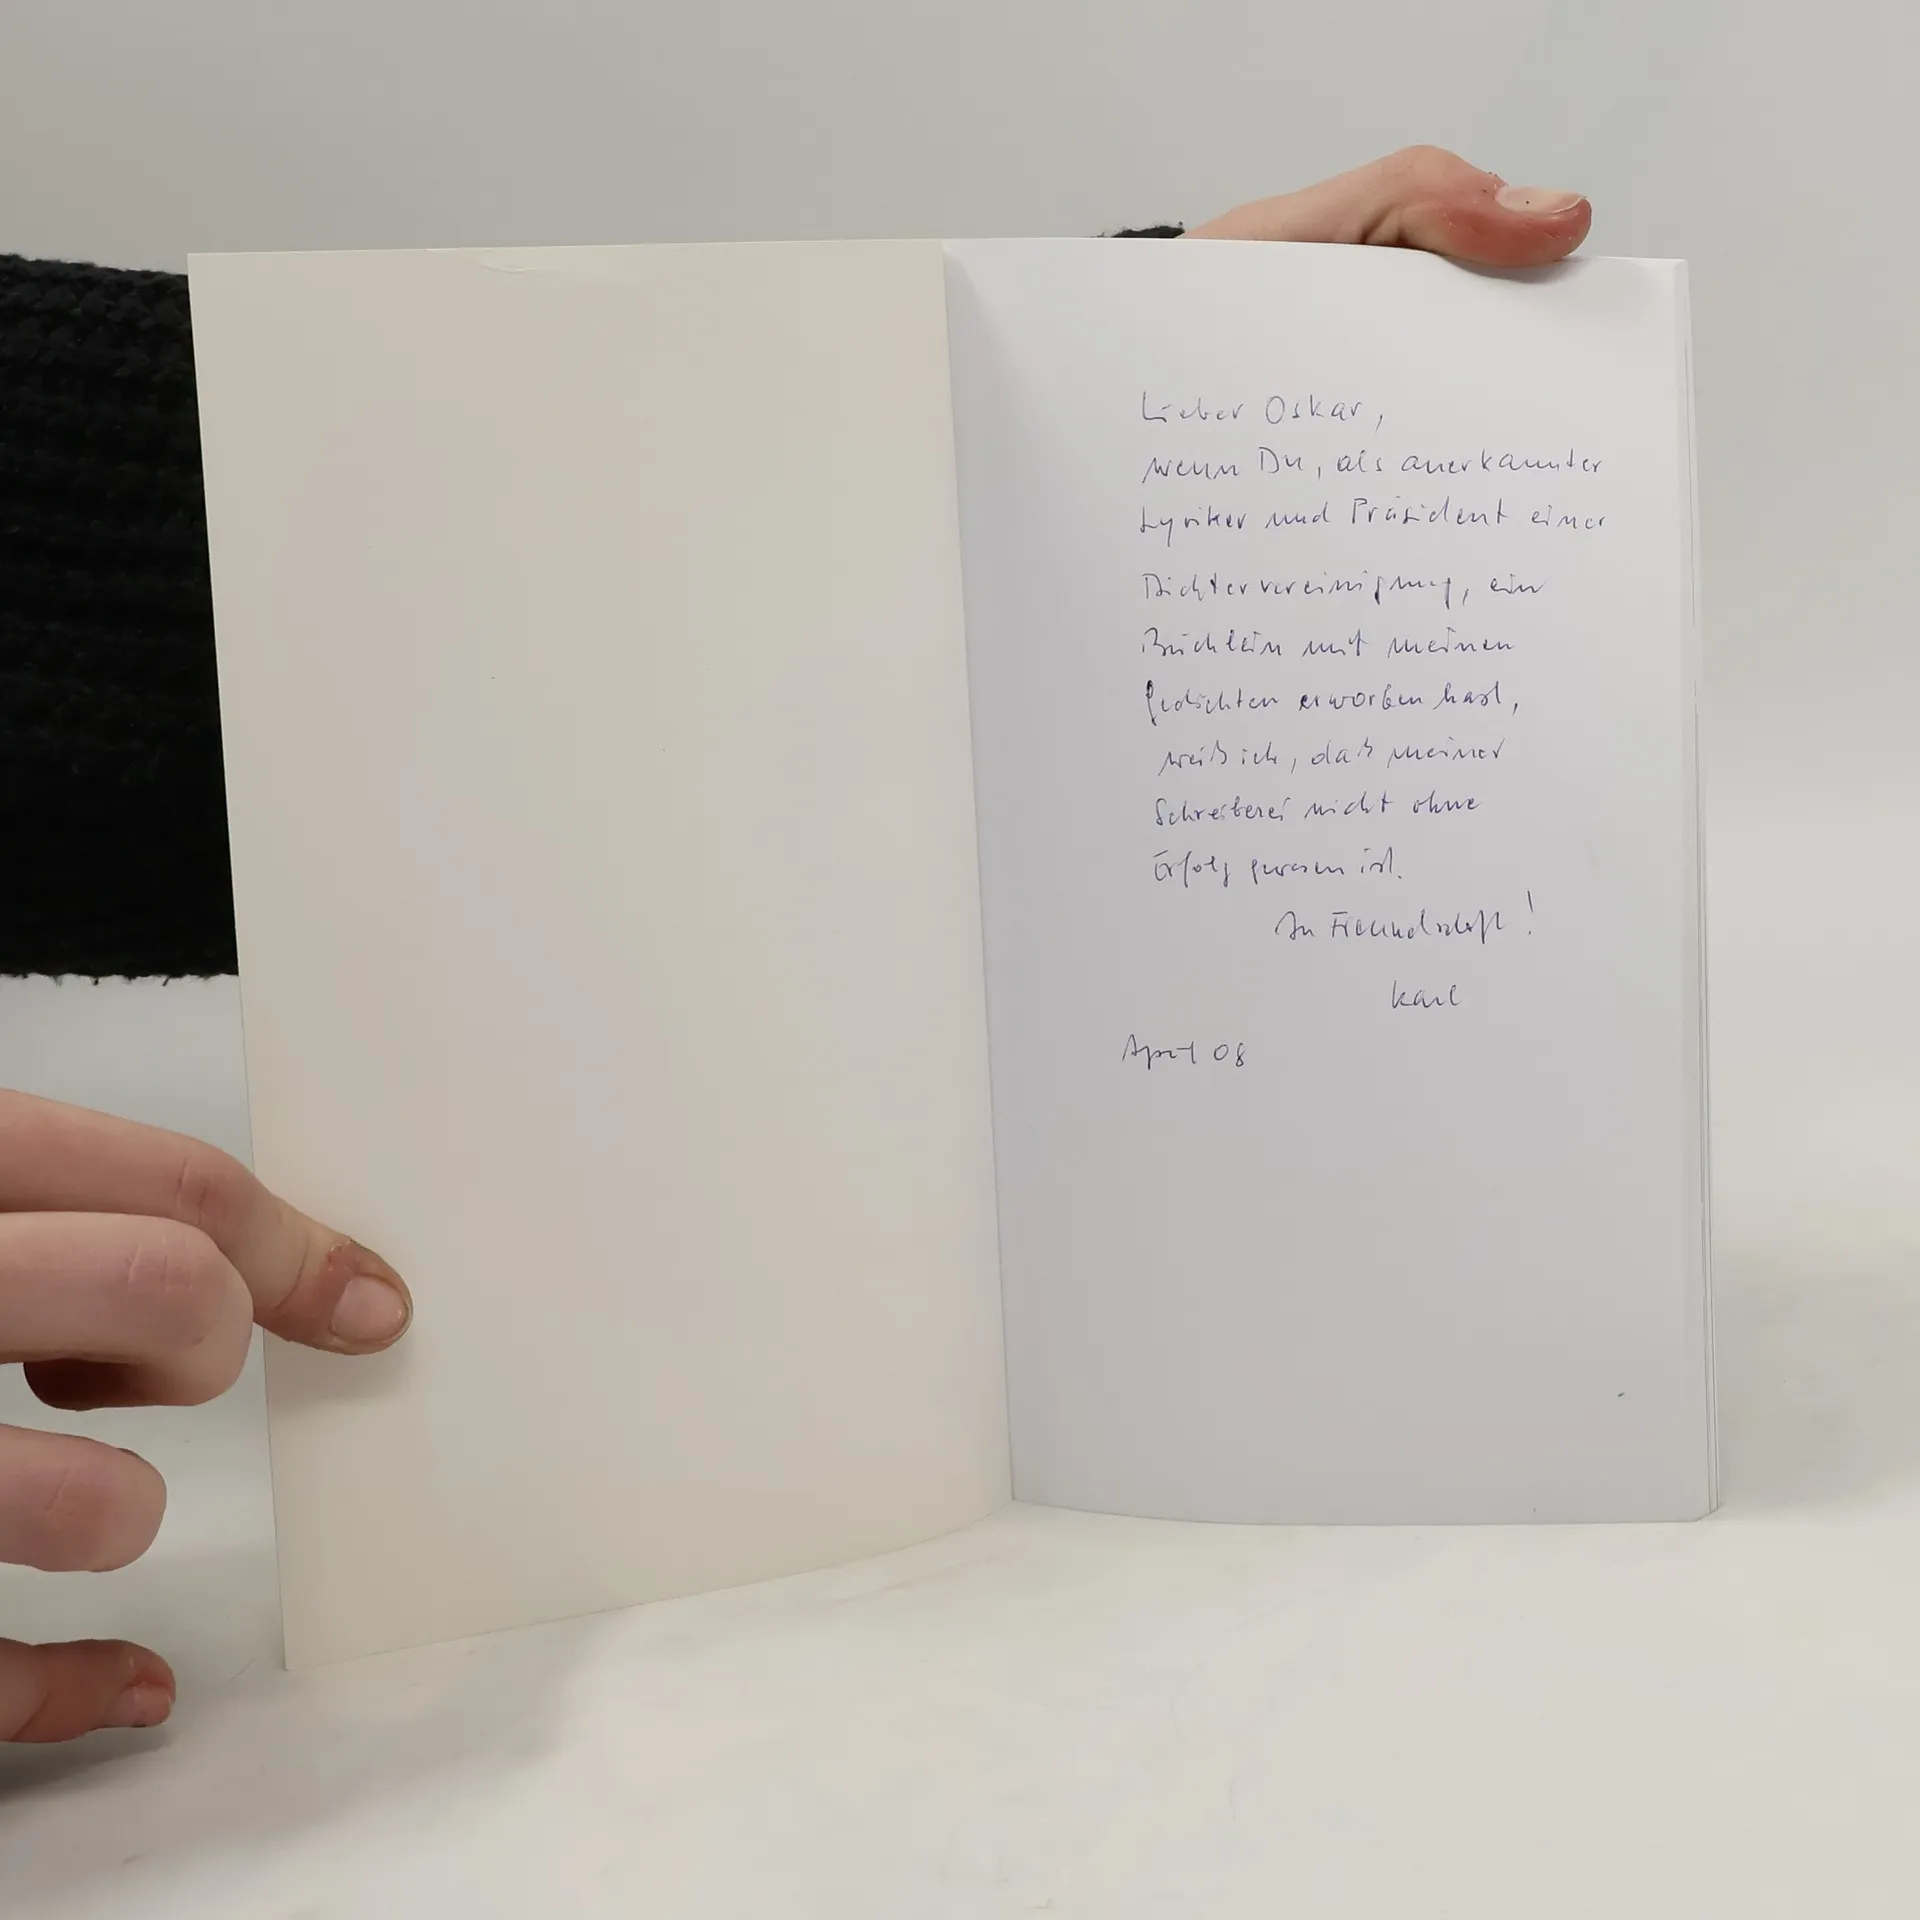 Lieber Oskar,
wenn Du, als anerkannter
Lyriker und Präsident einer
Dichtervereinigung, ein
Büchlein mit meinen
Gedichten erworben hast,
weiß ich, daß meiner
Schreiberei nicht ohne
Erfolg gewesen ist.
In Freundschaft!
Karl
April 08